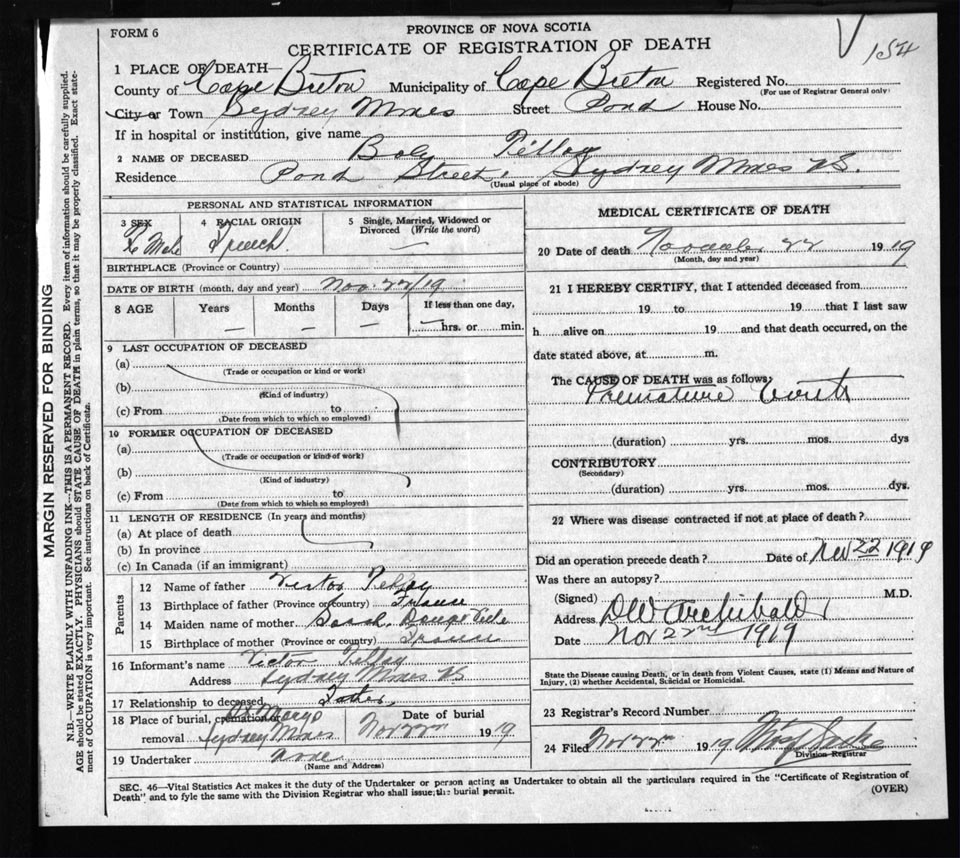 FORM 6
PROVINCE OF NOVA SCOTIA
CERTIFICATE OF REGISTRATION OF DEATH
154
1 PLACE OF DEATH—
County of Cape Breton Municipality of Cape Breton Registered No.
(For use of Registrar General only)
City or Town Sydney Mines Street Pond House No.
If in hospital or institution, give name
2 NAME OF DECEASED Baby
Residence Pond Street, Sydney Mines NS.
(Usual place of abode)
PERSONAL AND STATISTICAL INFORMATION
3 SEX 4 RACIAL ORIGIN 5 Single, Married, Widowed or Divorced (Write the word)
French
BIRTHPLACE (Province or Country)
DATE OF BIRTH (month, day and year) Nov. 22/19
8 AGE Years Months Days If less than one day,
— — — — hrs. or min.
9 LAST OCCUPATION OF DECEASED
(a)
(Trade or occupation or kind or work)
(b)
(Kind of industry)
(c) From to
(Date from which to which so employed)
10 FORMER OCCUPATION OF DECEASED
(a)
(Trade or occupation or kind of work)
(b)
(Kind of industry)
(c) From to
(Date from which to which so employed)
11 LENGTH OF RESIDENCE (In years and months)
(a) At place of death
(b) In province
(c) In Canada (if an immigrant)
Parents
12 Name of father Victor
13 Birthplace of father (Province or Country) France
14 Maiden name of mother Sarah
15 Birthplace of mother (Province or country) France
16 Informant's name Victor
Address Sydney Mines NS
17 Relationship to deceased Father
18 Place of burial, cremation or St Marys Date of burial
removal Sydney Mines Nov 22nd 1919
19 Undertaker none
(Name and Address)
MEDICAL CERTIFICATE OF DEATH
20 Date of death 22 1919
(Month, day and year)
21 I HEREBY CERTIFY, that I attended deceased from
19 to 19 that I last saw
h alive on 19 and that death occurred, on the
date stated above, at m.
The CAUSE OF DEATH was as follows:
Premature birth
(duration) yrs. mos. dys
CONTRIBUTORY
(Secondary)
(duration) yrs. mos. dys.
22 Where was disease contracted if not at place of death?
Did an operation precede death? Date of Nov 22 1919
Was there an autopsy?
(Signed) M.D.
Address DW Archibald
Date Nov 22nd 1919
State the Disease causing Death, or in death from Violent Causes, state (1) Means and Nature of
Injury, (2) whether Accidental, Suicidal or Homicidal.
23 Registrar's Record Number
24 Filed Nov 22nd 1919
Division Registrar
SEC. 46—Vital Statistics Act makes it the duty of the Undertaker or person acting as Undertaker to obtain all the particulars required in the "Certificate of Registration of
Death" and to fyle the same with the Division Registrar who shall issue the burial permit.
(OVER)
MARGIN RESERVED FOR BINDING
N.B.—WRITE PLAINLY WITH UNFADING INK—THIS IS A PERMANENT RECORD. Every item of information should be carefully supplied.
AGE should be stated EXACTLY. PHYSICIANS should STATE CAUSE OF DEATH in plain terms, so that it may be properly classified. Exact state-
ment of OCCUPATION is very important. See instructions on back of Certificate.